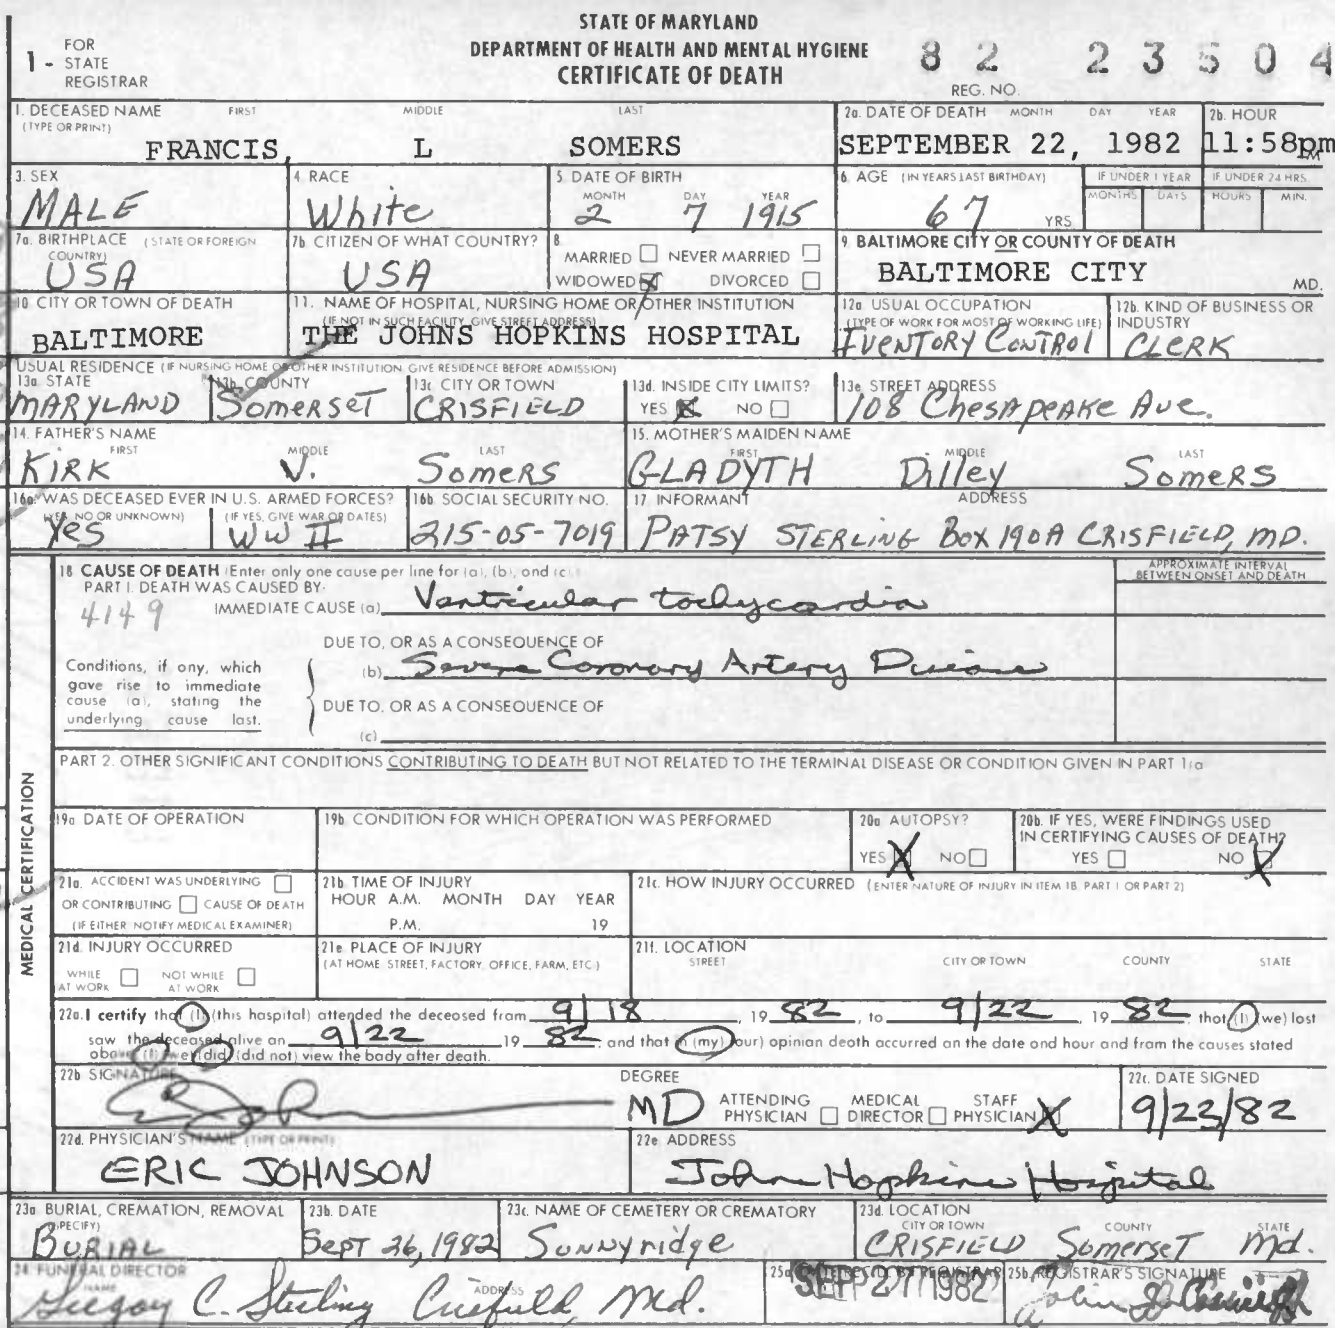 STATE OF MARYLAND
DEPARTMENT OF HEALTH AND MENTAL HYGIENE
CERTIFICATE OF DEATH
1 - FOR STATE REGISTRAR
82 23504
REG. NO.
1. DECEASED NAME (TYPE OR PRINT) FIRST MIDDLE LAST
FRANCIS, L SOMERS
2a. DATE OF DEATH MONTH DAY YEAR
SEPTEMBER 22, 1982
2b. HOUR
11:58pm
3. SEX
MALE
4. RACE
White
5. DATE OF BIRTH
MONTH DAY YEAR
2 7 1915
6. AGE (IN YEARS LAST BIRTHDAY)
67 YRS
IF UNDER 1 YEAR
MONTHS DAYS
IF UNDER 24 HRS.
HOURS MIN.
7a. BIRTHPLACE (STATE OR FOREIGN COUNTRY)
USA
7b. CITIZEN OF WHAT COUNTRY?
USA
8.
MARRIED NEVER MARRIED
WIDOWED DIVORCED
9. BALTIMORE CITY OR COUNTY OF DEATH
BALTIMORE CITY MD.
10. CITY OR TOWN OF DEATH
BALTIMORE
11. NAME OF HOSPITAL, NURSING HOME OR OTHER INSTITUTION
(IF NOT IN SUCH FACILITY, GIVE STREET ADDRESS)
THE JOHNS HOPKINS HOSPITAL
12a. USUAL OCCUPATION
(TYPE OF WORK FOR MOST OF WORKING LIFE)
IVENTORY CONTROL
12b. KIND OF BUSINESS OR INDUSTRY
CLERK
USUAL RESIDENCE (IF NURSING HOME OR OTHER INSTITUTION GIVE RESIDENCE BEFORE ADMISSION)
13a. STATE
MARYLAND
13b. COUNTY
SomerseT
13c. CITY OR TOWN
CRISFIELD
13d. INSIDE CITY LIMITS?
YES NO
13e. STREET ADDRESS
108 ChesApeAKe Ave.
14. FATHER'S NAME
FIRST MIDDLE LAST
KIRK V. Somers
15. MOTHER'S MAIDEN NAME
FIRST MIDDLE LAST
GLADYTH Dilley Somers
16a. WAS DECEASED EVER IN U.S. ARMED FORCES?
(YES, NO OR UNKNOWN) (IF YES, GIVE WAR OR DATES)
Yes WW II
16b. SOCIAL SECURITY NO.
215-05-7019
17. INFORMANT ADDRESS
PATSY STERLING Box 190A CRISFIELD, MD.
18. CAUSE OF DEATH (Enter only one cause per line for (a), (b), and (c).)
PART I. DEATH WAS CAUSED BY:
APPROXIMATE INTERVAL BETWEEN ONSET AND DEATH
4149
IMMEDIATE CAUSE (a) Ventricular tachycardia
DUE TO, OR AS A CONSEQUENCE OF
(b) Severe Coronary Artery Disease
Conditions, if any, which gave rise to immediate cause (a), stating the underlying cause last.
DUE TO, OR AS A CONSEQUENCE OF
(c)
PART 2. OTHER SIGNIFICANT CONDITIONS CONTRIBUTING TO DEATH BUT NOT RELATED TO THE TERMINAL DISEASE OR CONDITION GIVEN IN PART 1(a
MEDICAL CERTIFICATION
19a. DATE OF OPERATION
19b. CONDITION FOR WHICH OPERATION WAS PERFORMED
20a. AUTOPSY?
YES NO
20b. IF YES, WERE FINDINGS USED IN CERTIFYING CAUSES OF DEATH?
YES NO
21a. ACCIDENT WAS UNDERLYING
OR CONTRIBUTING CAUSE OF DEATH
(IF EITHER NOTIFY MEDICAL EXAMINER)
21b. TIME OF INJURY
HOUR A.M. MONTH DAY YEAR
P.M. 19
21c. HOW INJURY OCCURRED (ENTER NATURE OF INJURY IN ITEM 18, PART 1 OR PART 2)
21d. INJURY OCCURRED
WHILE AT WORK NOT WHILE AT WORK
21e. PLACE OF INJURY
(AT HOME, STREET, FACTORY, OFFICE, FARM, ETC.)
21f. LOCATION
STREET CITY OR TOWN COUNTY STATE
22a. I certify that (I) (this hospital) attended the deceased from 9/18, 19 82, to 9/22, 19 82, that (I) (we) last
saw the deceased alive on 9/22 19 82; and that in (my) (our) opinion death occurred on the date and hour and from the causes stated
above. (I) (we) (did) (did not) view the body after death.
22b. SIGNATURE
DEGREE
MD
ATTENDING PHYSICIAN MEDICAL DIRECTOR STAFF PHYSICIAN
22c. DATE SIGNED
9/23/82
22d. PHYSICIAN'S NAME (TYPE OR PRINT)
ERIC JOHNSON
22e. ADDRESS
John Hopkins Hospital
23a. BURIAL, CREMATION, REMOVAL (SPECIFY)
BURIAL
23b. DATE
SEPT 26, 1982
23c. NAME OF CEMETERY OR CREMATORY
Sunnyridge
23d. LOCATION
CITY OR TOWN COUNTY STATE
CRISFIELD SomerseT Md.
24. FUNERAL DIRECTOR
NAME ADDRESS
C. Sterling Crisfield, Md.
25a. DATE REC'D. BY REGISTRAR
SEP 27 1982
25b. REGISTRAR'S SIGNATURE
John